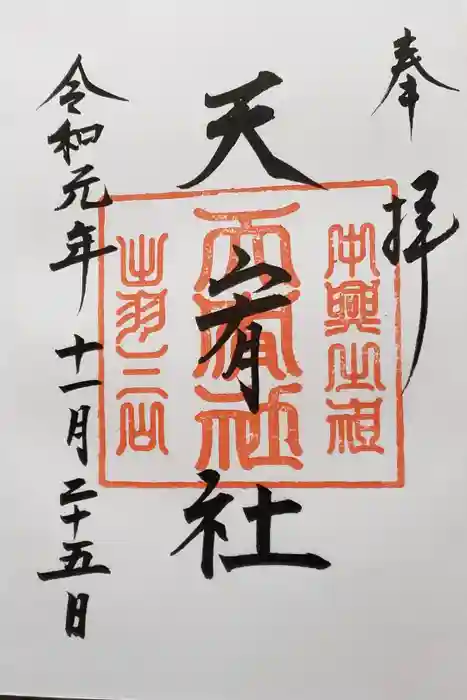 奉拝
中興之祖
天宥社
天宥社
出羽三山
令和元年十一月二十五日